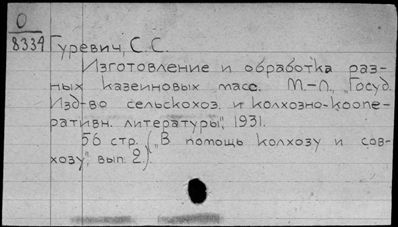 О
8334
Гуревич, С. С.
Изготовление и обработка раз-
ных казеиновых масс. М.-Л., „Госуд.
Изд-во сельскохоз. и колхозно-коопе-
ративн. литературы", 1931.
56 стр. („В помощь колхозу и сов-
хозу", вып. 2.).